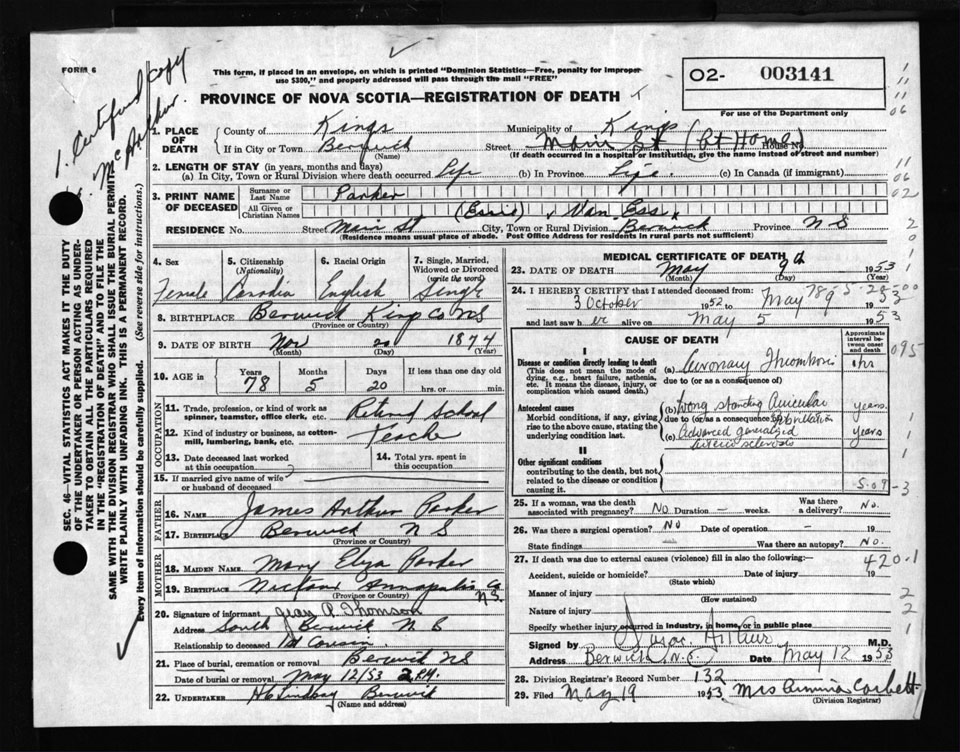 FORM 6
This form, if placed in an envelope, on which is printed "Dominion Statistics—Free, penalty for improper
use $300," and properly addressed will pass through the mail "FREE"
O2- 003141
For use of the Department only
PROVINCE OF NOVA SCOTIA—REGISTRATION OF DEATH
1. Certified copy
McArthur.
SEC. 46—VITAL STATISTICS ACT MAKES IT THE DUTY
OF THE UNDERTAKER OR PERSON ACTING AS UNDER-
TAKER TO OBTAIN ALL THE PARTICULARS REQUIRED
IN THE "REGISTRATION OF DEATH" AND TO FILE THE
SAME WITH THE DIVISION REGISTRAR WHO SHALL ISSUE THE BURIAL PERMIT.
WRITE PLAINLY WITH UNFADING INK. THIS IS A PERMANENT RECORD.
Every item of information should be carefully supplied. (See reverse side for instructions.)
1. PLACE OF DEATH
County of Kings Municipality of Kings
If in City or Town Berwick Street Main St (At Home) House No.
(Name) (If death occurred in a hospital or institution, give the name instead of street and number)
2. LENGTH OF STAY (in years, months and days)
(a) In City, Town or Rural Division where death occurred Life (b) In Province Life. (c) In Canada (if immigrant)
3. PRINT NAME OF DECEASED
Surname or Last Name Parker
All Given or Christian Names (Essie) Van Ess
RESIDENCE No. Street Main St City, Town or Rural Division Berwick Province N S
(Residence means usual place of abode. Post Office Address for residents in rural parts not sufficient)
4. Sex Female
5. Citizenship (Nationality) Canadian
6. Racial Origin English
7. Single, Married, Widowed or Divorced (write the word) Single
8. BIRTHPLACE Berwick Kings Co NS
(Province or Country)
9. DATE OF BIRTH Nov 20 1874
(Month) (Day) (Year)
10. AGE in Years 78 Months 5 Days 20 If less than one day old hrs. or min.
OCCUPATION
11. Trade, profession, or kind of work as spinner, teamster, office clerk, etc. Retired School
12. Kind of industry or business, as cotton-mill, lumbering, bank, etc. Teacher
13. Date deceased last worked at this occupation
14. Total yrs. spent in this occupation
15. If married give name of wife or husband of deceased
FATHER
16. NAME James Arthur Parker
17. BIRTHPLACE Berwick N S
(Province or Country)
MOTHER
18. MAIDEN NAME Mary Eliza Parker
19. BIRTHPLACE Nictaux Annapolis Co N.S.
(Province or Country)
20. Signature of informant Jean P. Thomson
Address South Berwick N S
Relationship to deceased 1st Cousin
21. Place of burial, cremation or removal Berwick NS
Date of burial or removal May 12/53 2 P.M.
22. UNDERTAKER H C Lindsay Berwick
(Name and address)
MEDICAL CERTIFICATE OF DEATH
23. DATE OF DEATH May 9th 1953
(Month) (Day) (Year)
24. I HEREBY CERTIFY that I attended deceased from:
3 October 1952 to May 9 1953
and last saw her alive on May 5 1953
CAUSE OF DEATH
Approximate interval between onset and death
I
Disease or condition directly leading to death
(This does not mean the mode of dying, e.g., heart failure, asthenia, etc. It means the disease, injury, or complication which caused death.)
(a) Coronary Thrombosis 1 hr
due to (or as a consequence of)
Antecedent causes
Morbid conditions, if any, giving rise to the above cause, stating the underlying condition last.
(b) Long standing Auricular Fibrillation years.
due to (or as a consequence of)
(c) Advanced generalized arterio sclerosis years
II
Other significant conditions
contributing to the death, but not related to the disease or condition causing it.
25. If a woman, was the death associated with pregnancy? No Duration — weeks. Was there a delivery? No.
26. Was there a surgical operation? No Date of operation — 19
State findings — Was there an autopsy? No.
27. If death was due to external causes (violence) fill in also the following:— 420.1
Accident, suicide or homicide? Date of injury 19
(State which)
Manner of injury
(How sustained)
Nature of injury
Specify whether injury occurred in industry, in home, or in public place
Signed by M.D.
Address Berwick, N.S. Date May 12 1953
28. Division Registrar's Record Number 132
29. Filed May 19 1953 Mrs Corbett
(Division Registrar)